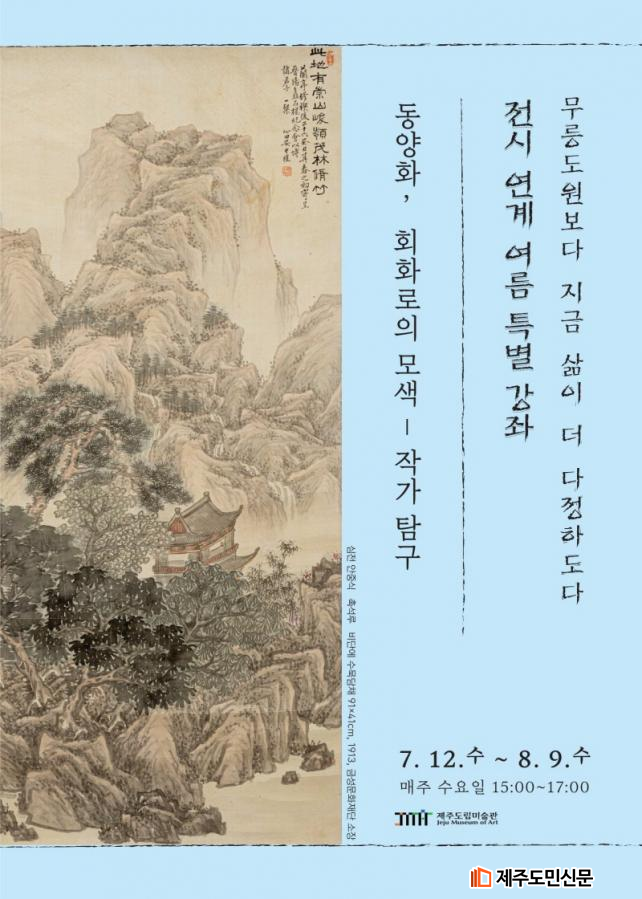 무릉도원보다 지금 삶이 더 다정하도다
전시 연계 여름 특별 강좌
동양화, 회화로의 모색 – 작가 탐구
此地有崇山峻領茂林脩竹
심전 안중식 촉석루 비단에 수묵담채 91×41cm, 1913, 금성문화재단 소장
7. 12.수 ~ 8. 9.수
매주 수요일 15:00~17:00
제주도립미술관
Jeju Museum of Art
제주도민신문